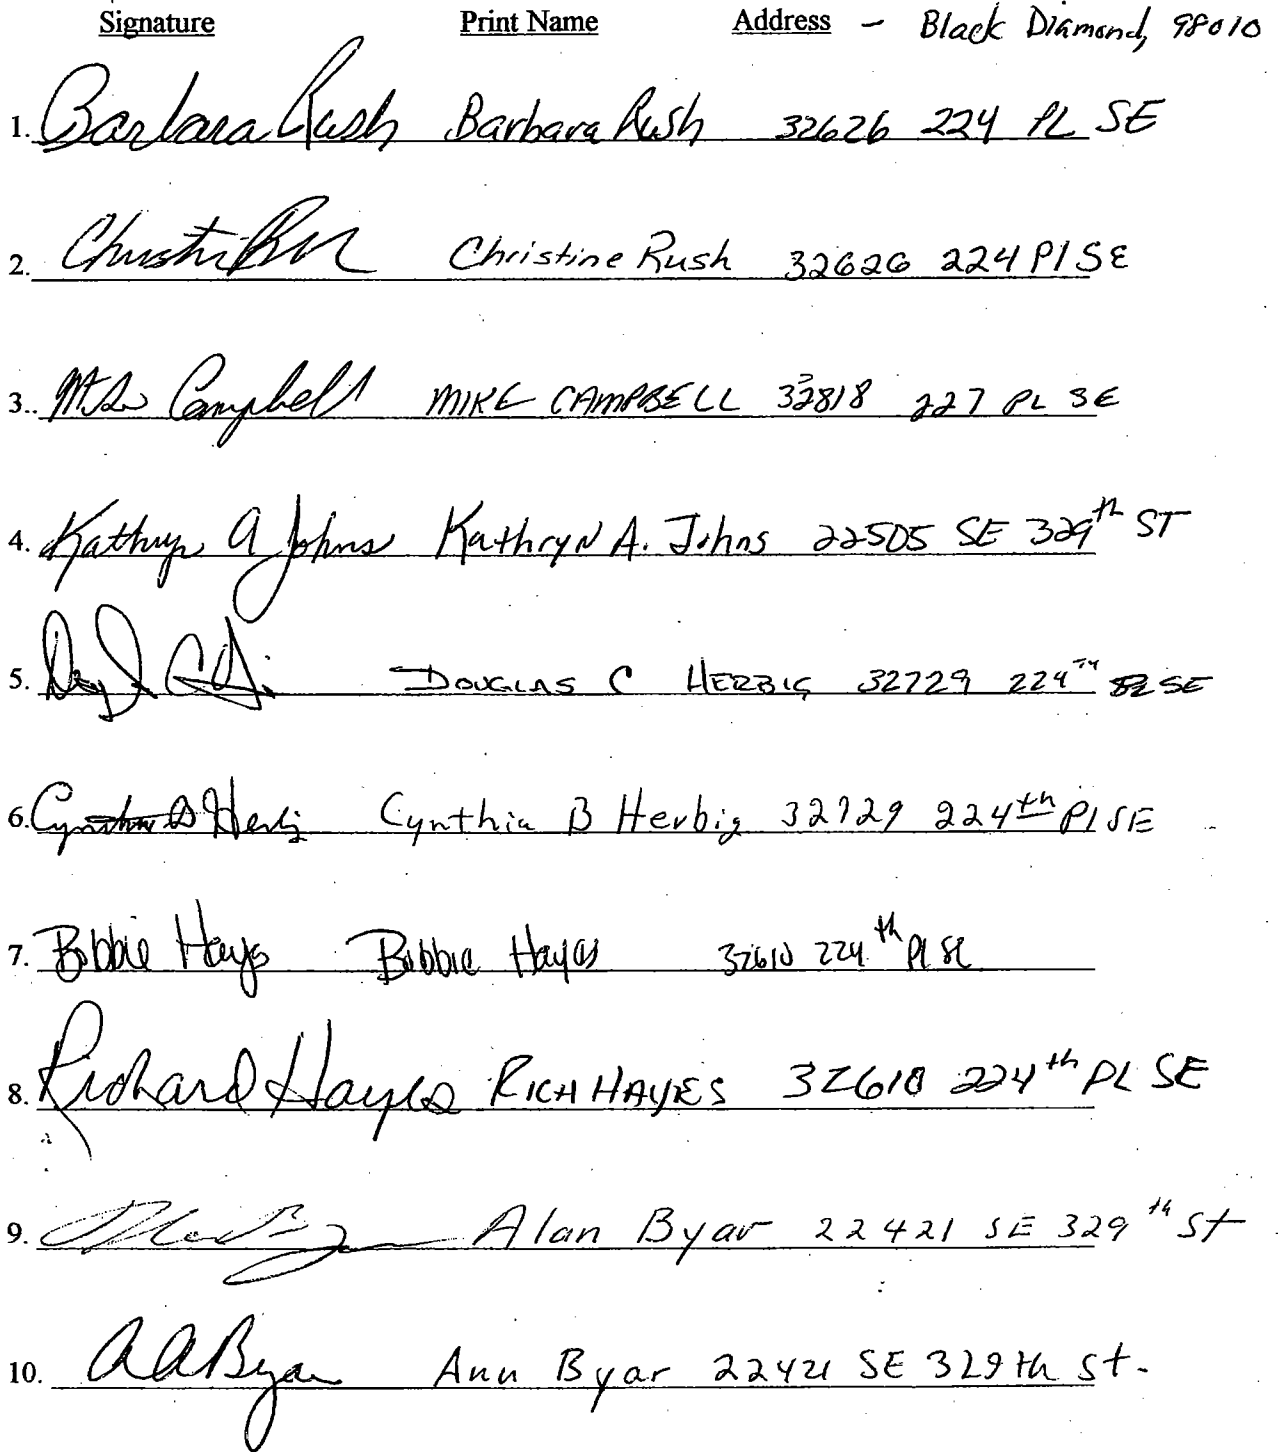 Signature Print Name Address - Black Diamond, 98010
1. Barbara Rush Barbara Rush 32626 224 PL SE
2. Christine Rush 32626 224 Pl SE
3. Mike Campbell MIKE CAMPBELL 32818 227 PL SE
4. Kathryn A Johns Kathryn A. Johns 22505 SE 329th ST
5. DOUGLAS C HERBIG 32729 224TH PL SE
6. Cynthia B Herbig Cynthia B Herbig 32729 224th Pl SE
7. Bobbie Hayes Bobbie Hayes 32610 224th Pl SE
8. Richard Hayes RICH HAYES 32610 224th PL SE
9. Alan Byar 22421 SE 329th St
10. A A Byar Ann Byar 22421 SE 329th St.